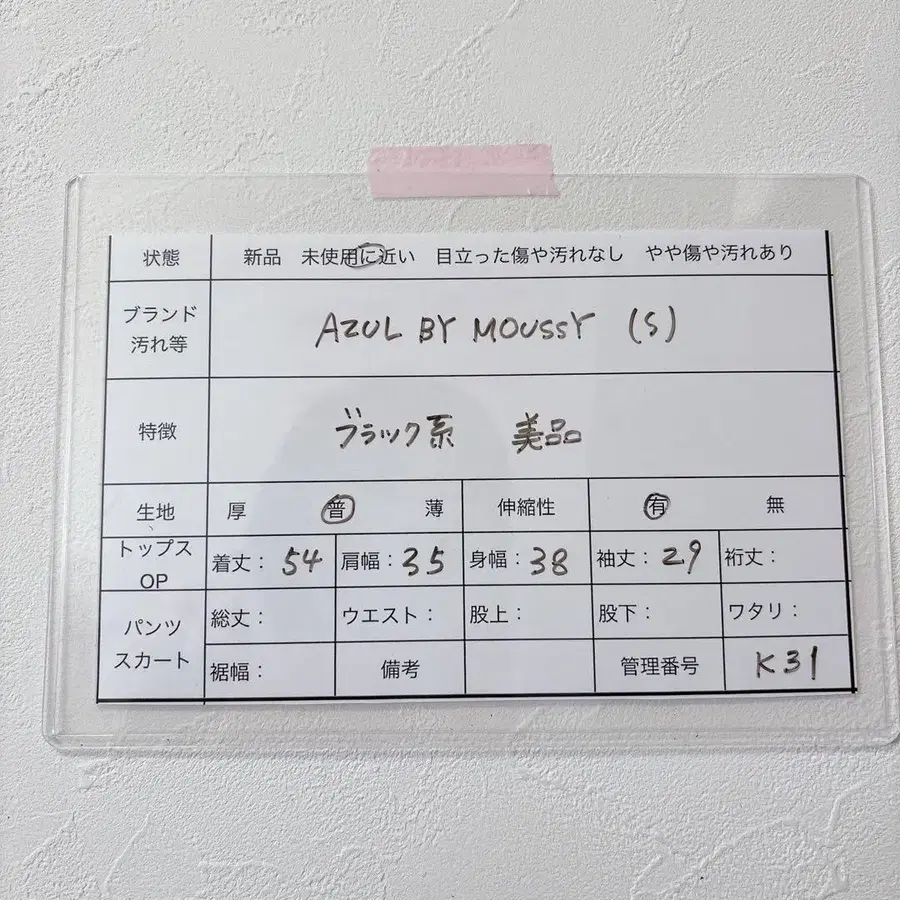 状態 新品 未使用に近い 目立った傷や汚れなし やや傷や汚れあり
ブランド
汚れ等
AZUL BY MOUSSY (S)
特徴 ブラック系 美品
生地 厚 普 薄 伸縮性 有 無
トップス
OP
着丈： 54 肩幅： 35 身幅： 38 袖丈： 29 裄丈：
パンツ
スカート
総丈： ウエスト： 股上： 股下： ワタリ：
裾幅： 備考 管理番号 K31